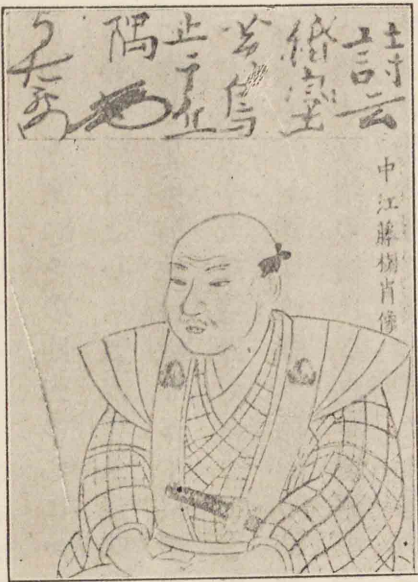 詩云
緡蛮
黄鳥
止于丘
隅
中江藤樹肖像